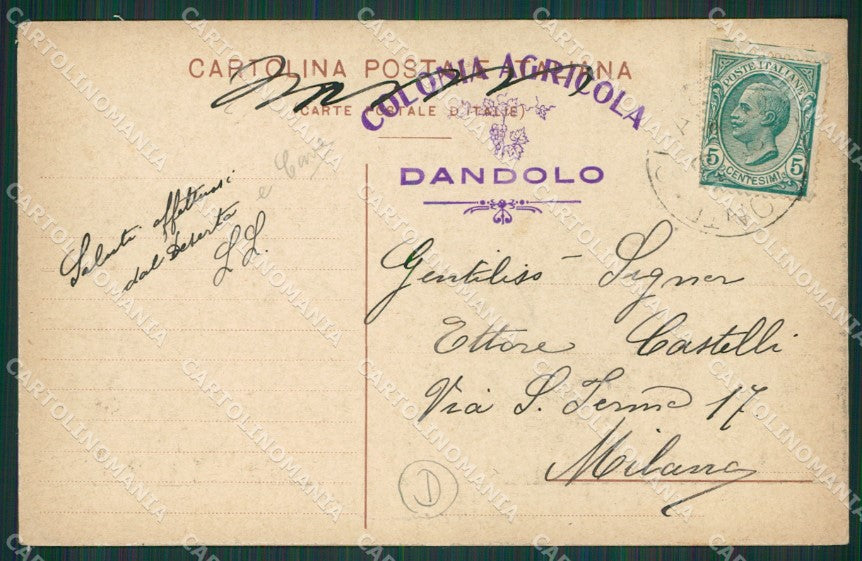 CARTOLINA POSTALE ITALIANA
(CARTE POSTALE D'ITALIE)
COLONIA AGRICOLA
DANDOLO
POSTE ITALIANE
5 5
CENTESIMI
Saluti affettuosi
dal deserto
L L.
Gentiliso Signor
Ettore Castelli
Via S. 17
Milano
D
CARTOLINOMANIA